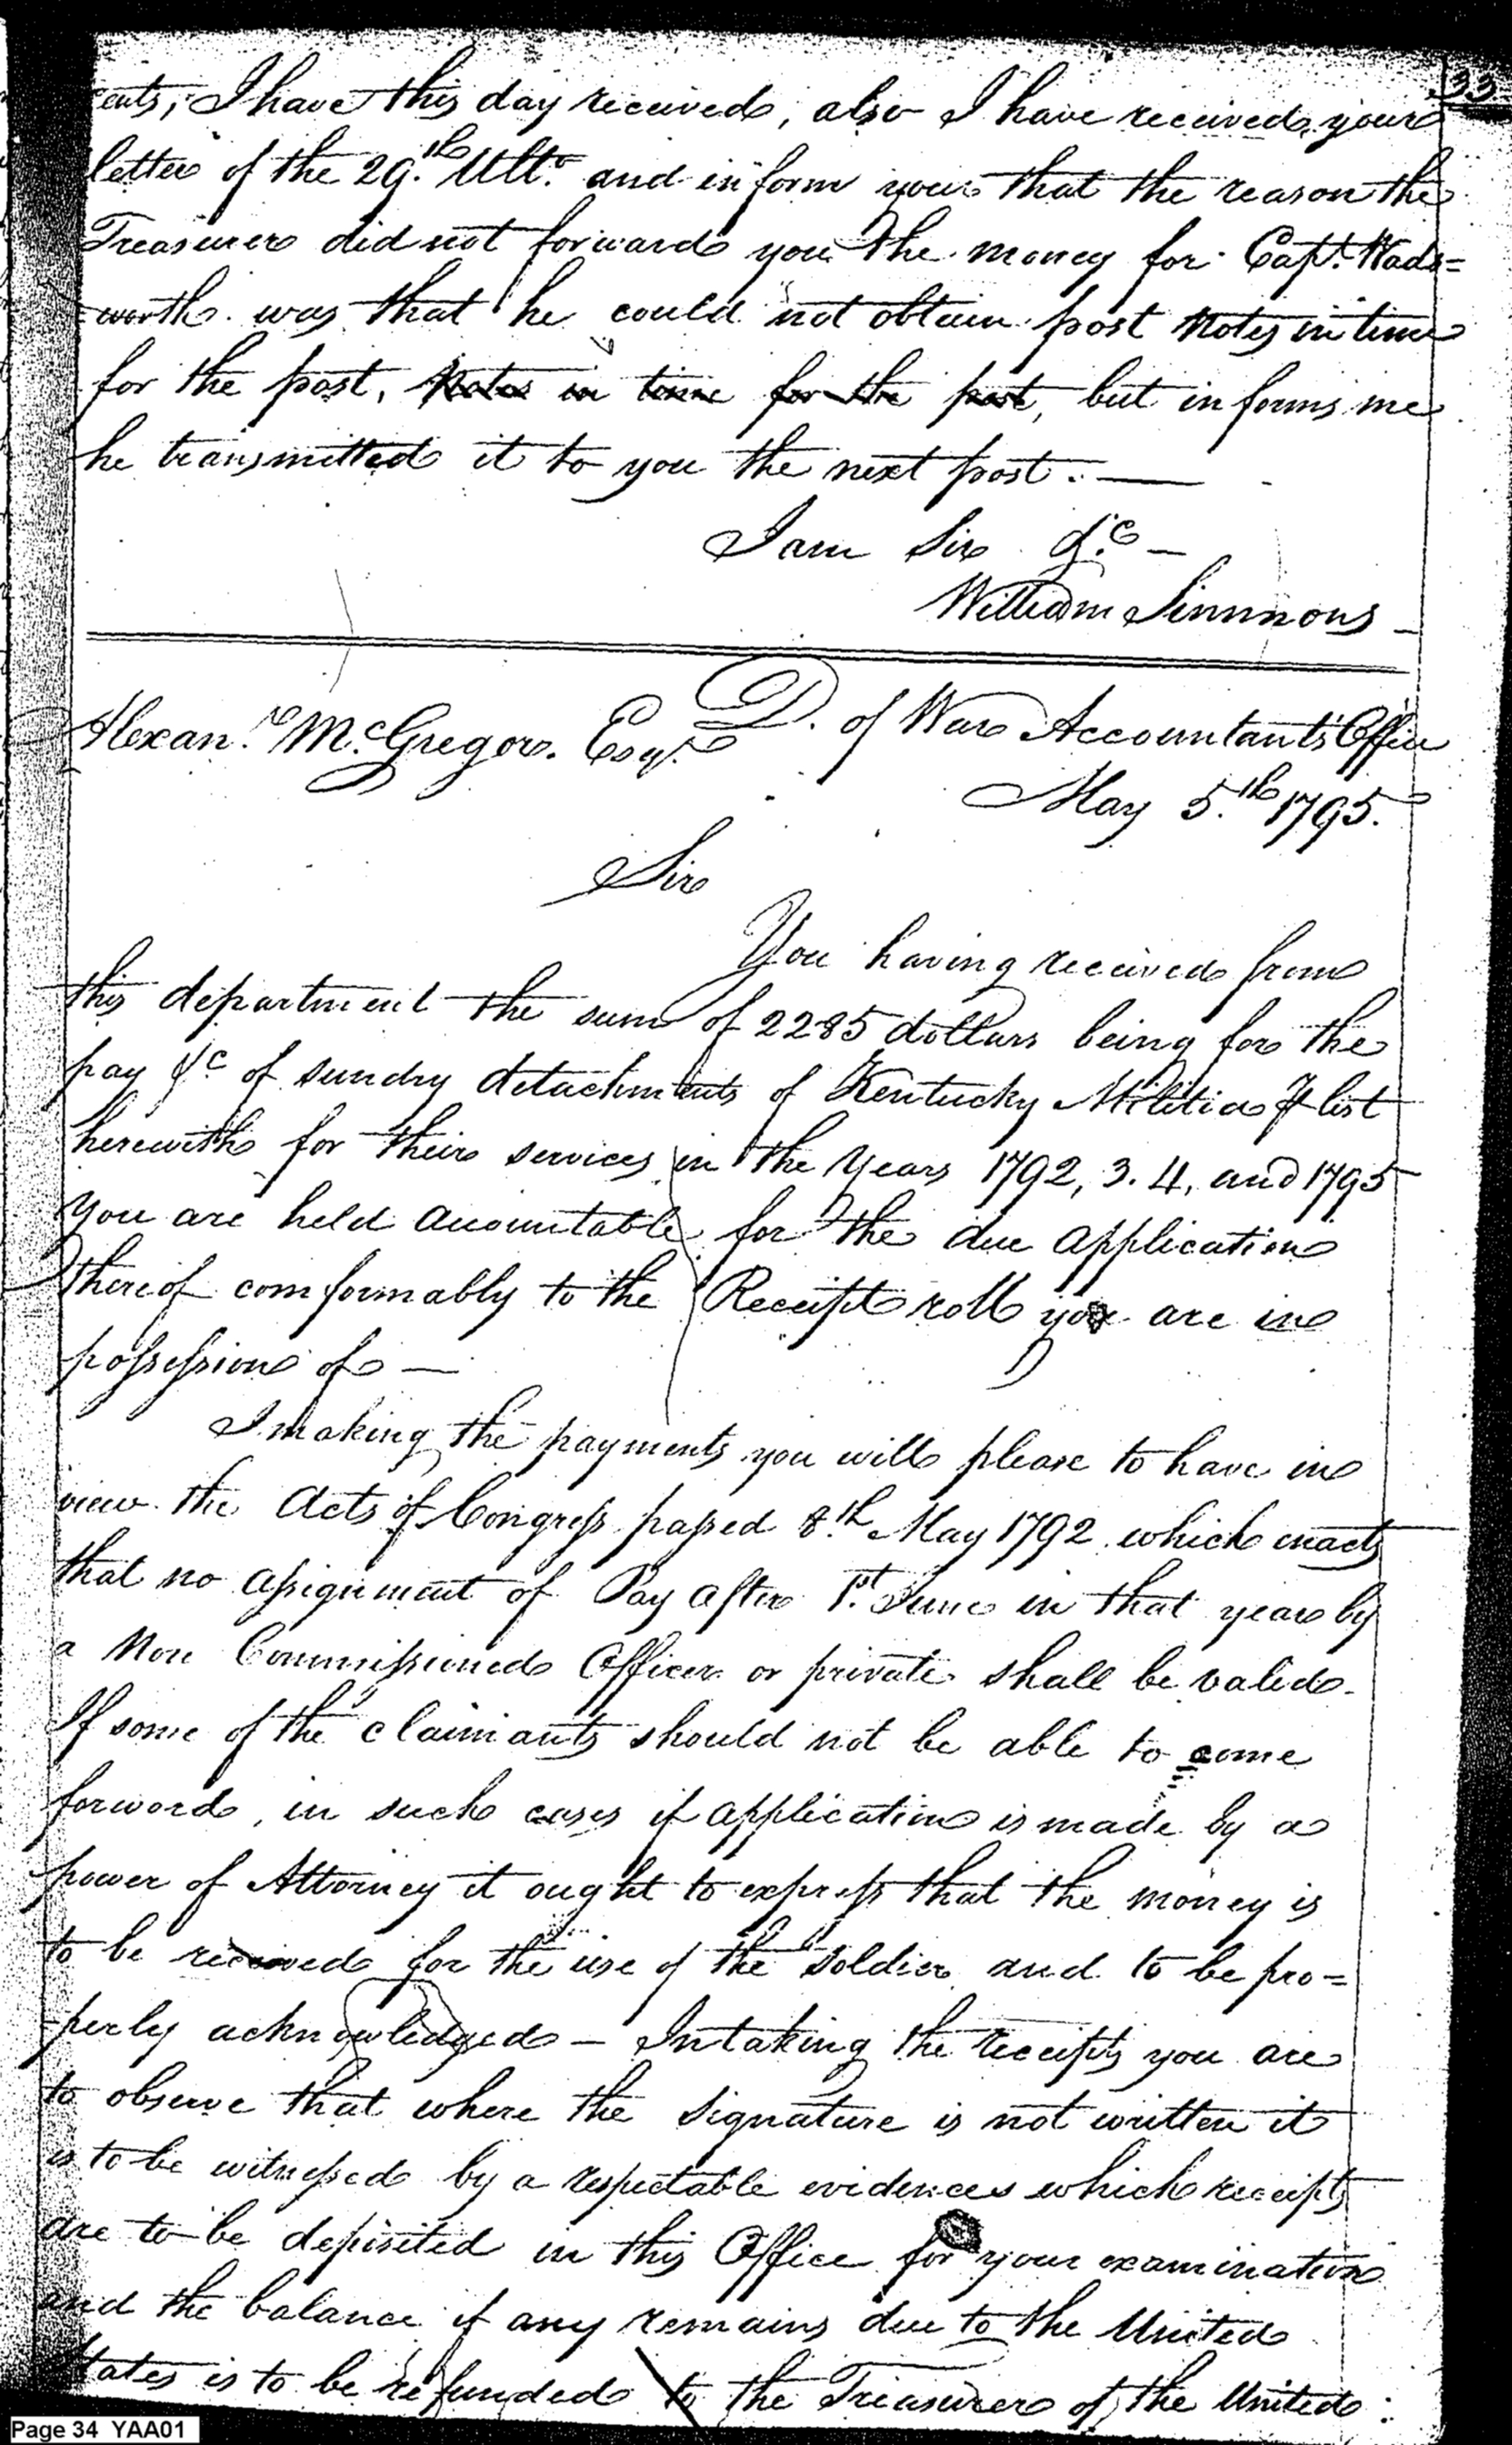 33
ents, I have this day received, also I have received your
letter of the 29.th Ulto. and inform you that the reason the
Treasurer did not forward you the money for Capt. Wads=
worth was that he could not obtain post Notes in time
for the post, Notes in time for the post, but informs me
he transmitted it to you the next post. —
I am Sir &c —
William Simmons
Alexanr. McGregor. Esqr.
D. of War Accountants Office
May 5.th 1795.
Sir
You having received from
this department the sum of 2285 dollars being for the
pay &c of sundry detachments of Kentucky Militia list
herewith for their services in the Years 1792, 3. 4, and 1795
you are held accountable for the due application
thereof comformably to the Receipt roll you are in
possession of —
I making the payments you will please to have in
view the Acts of Congress passed 8.th May 1792 which enacts
that no assignment of Pay after 1st. June in that year by
a Non Commissioned Officer or private shall be valid.
If some of the claimants should not be able to come
forword, in such cases if application is made by a
power of Attorney it ought to express that the money is
to be received for the use of the soldier and to be pro=
-perly acknowledged — In taking the receipts you are
to observe that where the signature is not written it
is to be witnessed by a respectable evidences which receipts
are to be deposited in this Office for your examination
and the balance if any remains due to the United
States is to be refunded to the Treasurer of the United
Page 34 YAA01